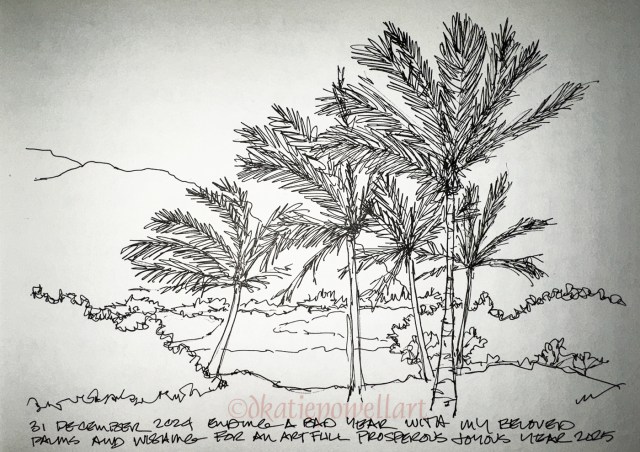 ©katiepowellart
31 DECEMBER 2024 ENDING A BAD YEAR WITH MY BELOVED
PALMS AND WISHING FOR AN ARTFULL PROSPEROUS JOYOUS YEAR 2025